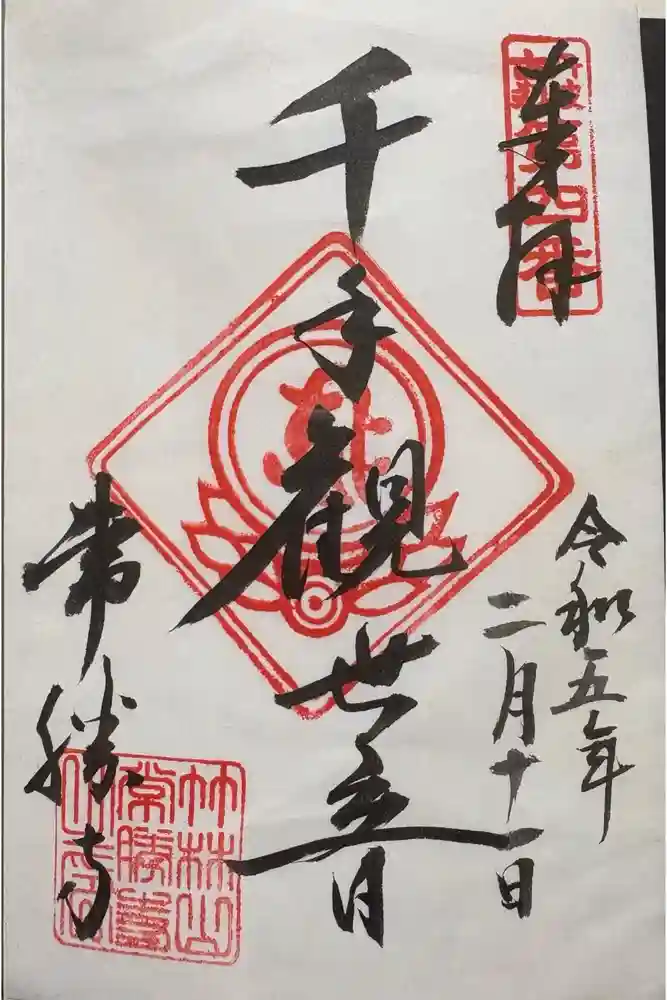 奉拝
第四番
令和五年
二月十一日
千手観世音
常勝寺
竹林山
常勝寺